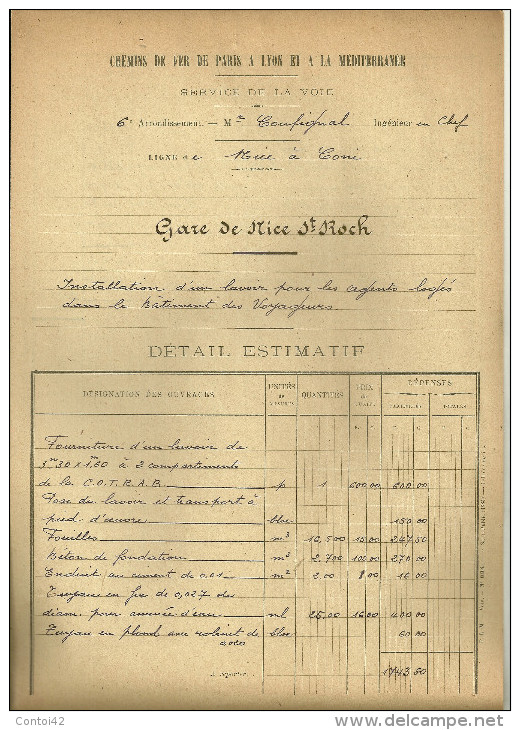 CHEMINS DE FER DE PARIS A LYON ET A LA MEDITERRANEE
SERVICE DE LA VOIE
6e Arrondissement. — Mr Confignal Ingénieur en Chef
LIGNE de Nice à Coni
Gare de Nice St Roch
Installation d'un lavoir pour les agents logés
dans le bâtiment des Voyageurs
DÉTAIL ESTIMATIF
DÉSIGNATION DES OUVRAGES UNITÉS de QUANTITÉS PRIX DÉPENSES
Fourniture d'un lavoir de
30 x 1,50 à 2 compartiments
de la C.O.T.R.A.B. p 1 600,00 600,00
Pose du lavoir et transport à
pied d'œuvre bloc 150,00
Fouilles m3 16,500 15,00 247,50
Béton de fondation m3 2,700 100,00 270,00
Enduit au ciment de 0,01 m2 2,00 8,00 16,00
Tuyaux en fer de 0,027 de
diam. pour amenée d'eau ml 25,00 16,00 400,00
Tuyau en plomb avec robinet de bloc 60,00
1743,50
A reporter
Contoi42
www.delcampe.net